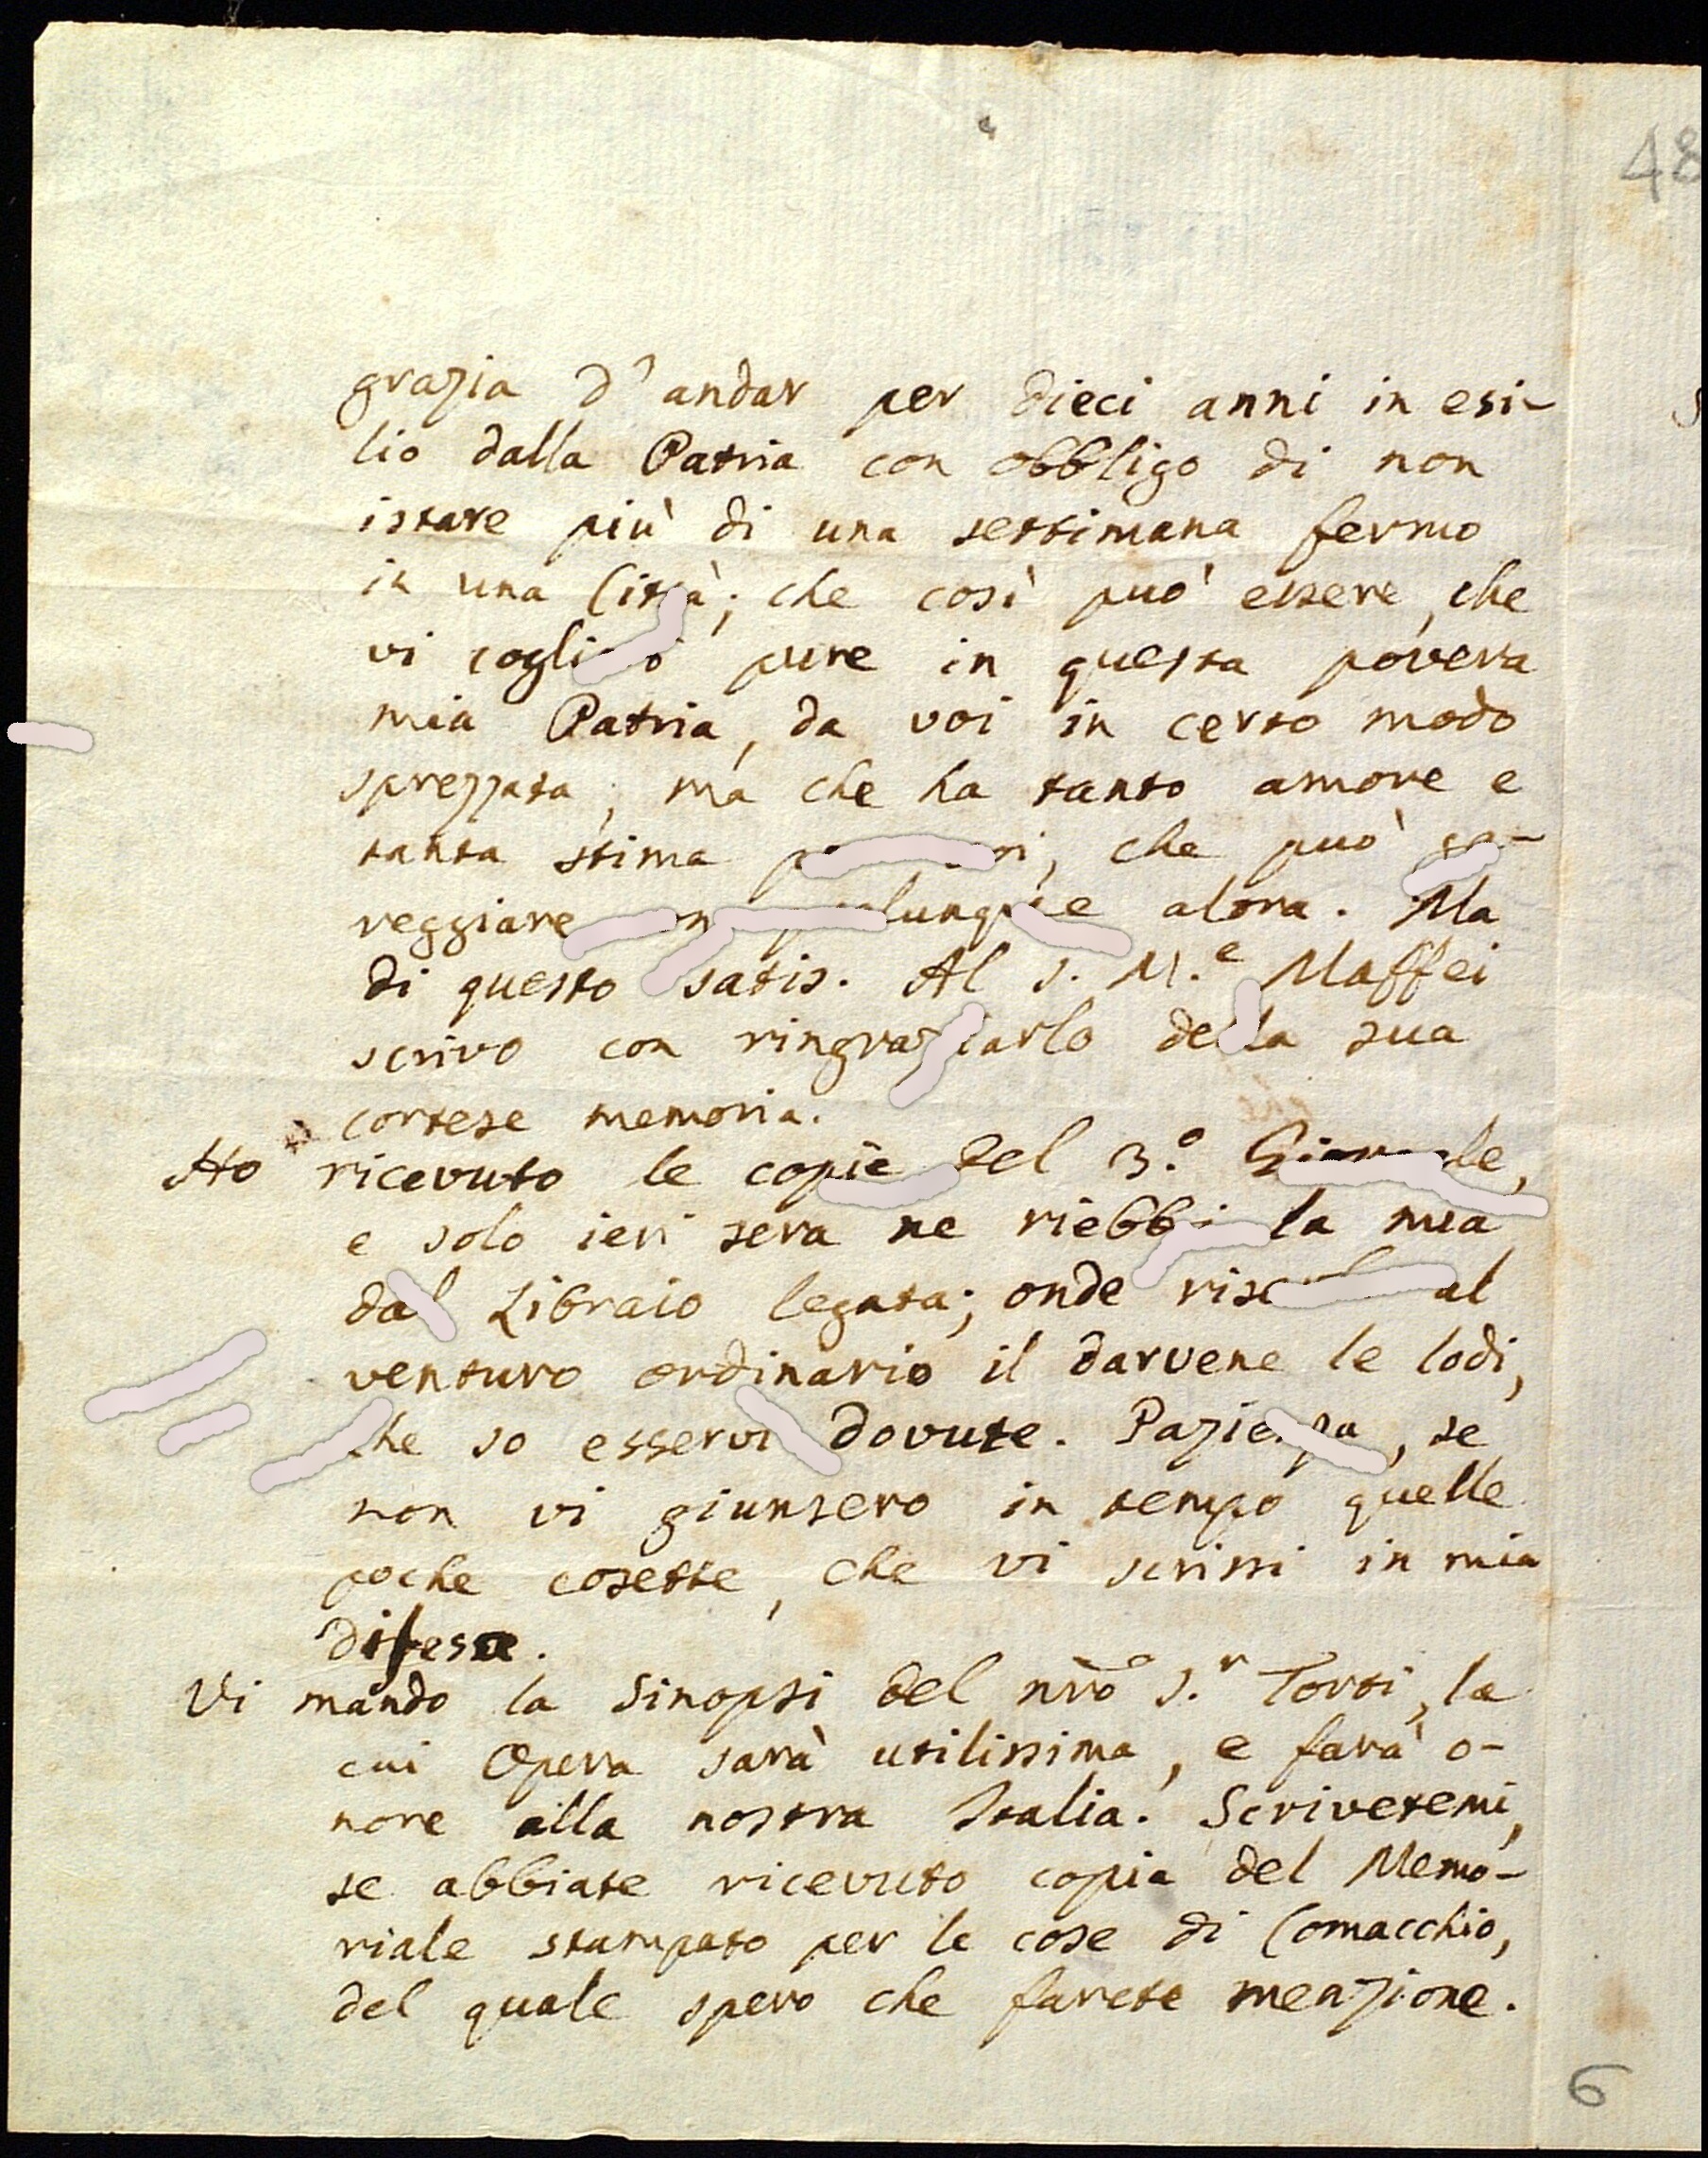 48
grazia d'andar per dieci anni in esi-
lio dalla Patria con obbligo di non
istare più di una settimana fermo
in una Città; che così può essere, che
vi pure in questa povera
mia Patria, da voi in certo modo
sprezzata; ma che ha tanto amore e
tanta stima che può
reggiare alora. Ma
di questo satis. Al S. M.e Maffei
scrivo con ringraziarlo della sua
cortese memoria.
Ho ricevuto le copie del 3.o Giornale,
e solo ieri sera ne riebbi la mia
dal Libraio legata; onde al
venturo ordinario il darvene le lodi,
che so esservi dovute. Pazienza, se
non vi giunsero in tempo quelle
poche cosette, che vi scrissi in mia
difesa.
Vi mando la Sinopsi del nro S.r Torti, la
cui Opera sarà utilissima, e farà o-
nore alla nostra Italia. Scrivetemi,
se abbiate ricevuto copia del Memo-
riale stampato per le cose di Comacchio,
del quale spero che farete menzione.
6